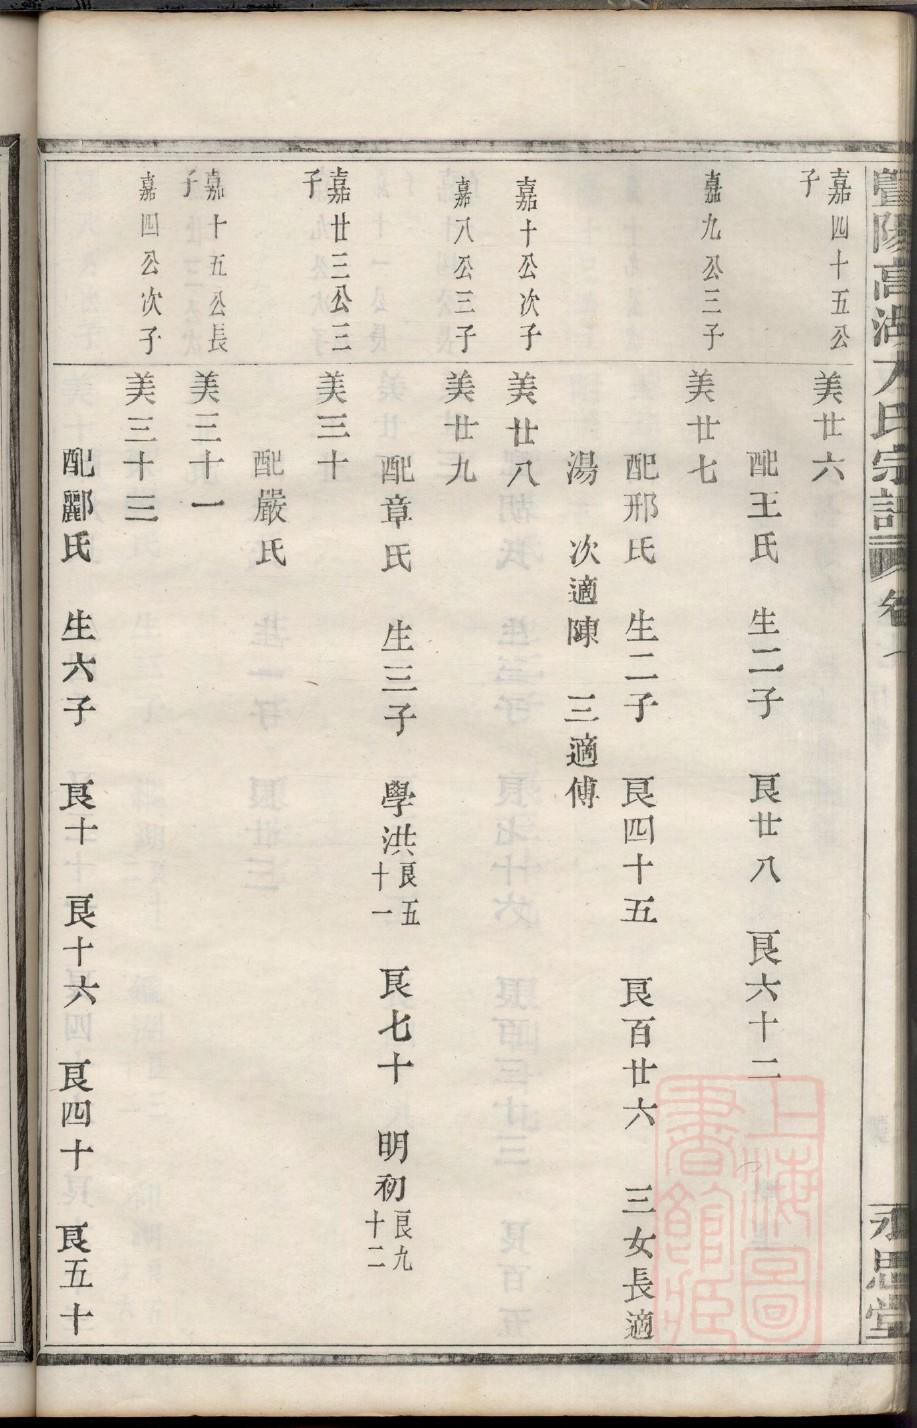 暨陽高湖方氏宗譜 卷
永思堂
嘉四十五公子
美廿六
配王氏 生二子 良廿八 良六十二
嘉九公三子
美廿七
配邢氏 生二子 良四十五 良百廿六 三女長適
湯 次適陳 三適傅
嘉十公次子
美廿八
嘉八公三子
美廿九
配章氏 生三子 學洪良五十一 良七十 明初良九十二
嘉廿三公三子
美三十
配嚴氏
嘉十五公長子
美三十一
嘉四公次子
美三十三
配酈氏 生六子 良十 良十六 良四十 良五十
上海圖書館藏